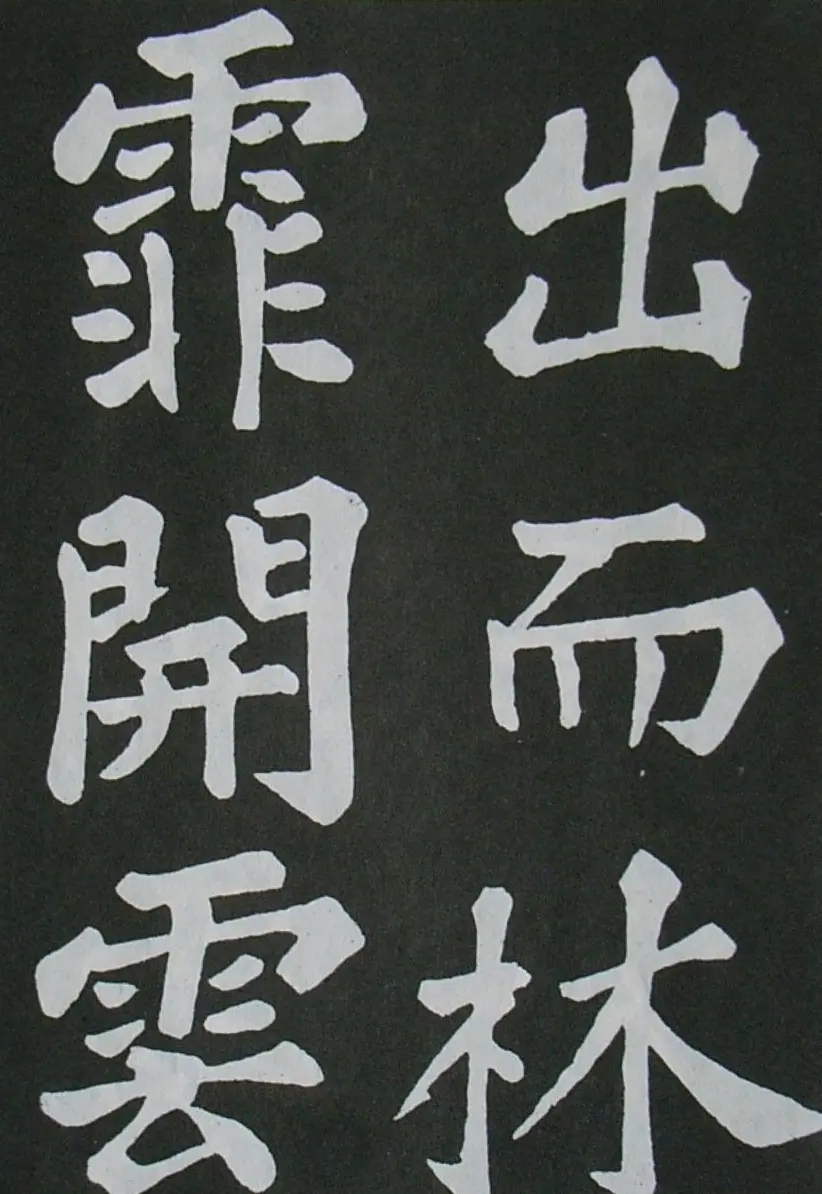 出而林
霏開雲